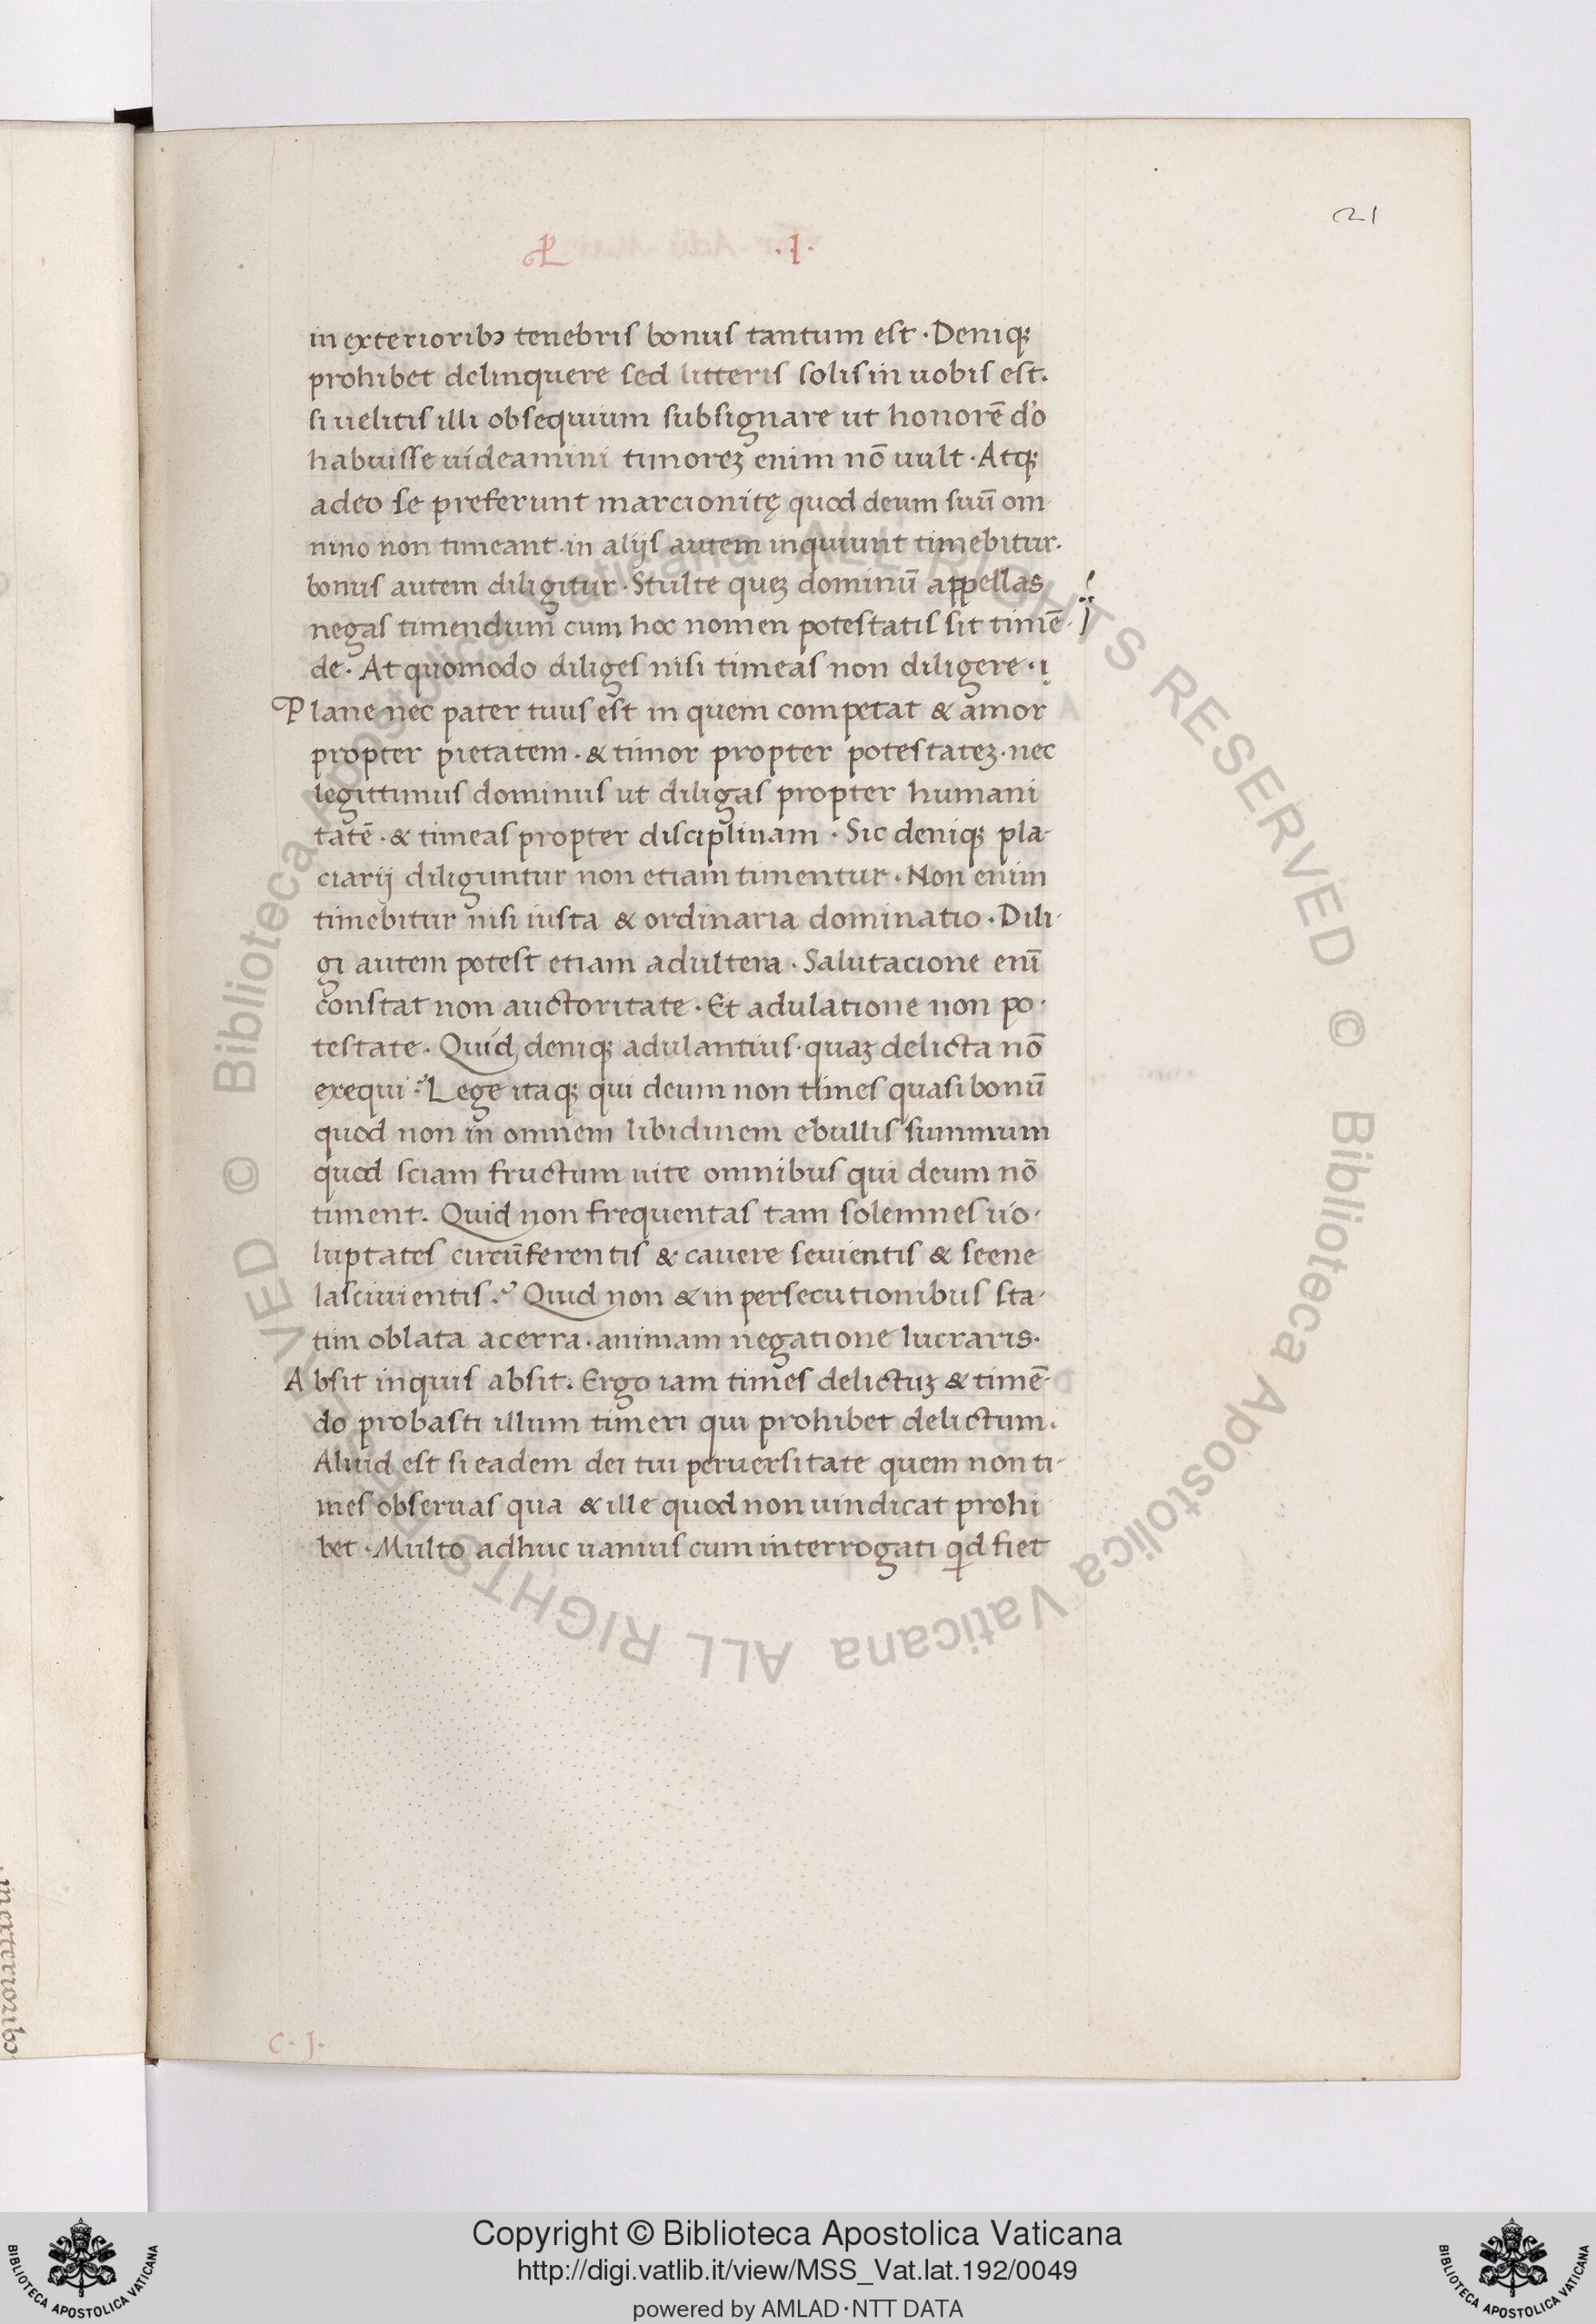 21
PL ·I·
in exterioribꝫ tenebris bonus tantum est · Deniqꝫ
prohibet delinquere sed litteris solis in uobis est.
si uelitis illi obsequium subsignare ut honorē do
habuisse uideamini timoreꝫ enim nō uult · Atqꝫ
adeo se preferunt marcionitę quod deum suū om
nino non timeant · in alijs autem inquiunt timebitur.
bonus autem diligitur · Stulte queꝫ dominū appellas
negas timendum cum hoc nomen potestatis sit timē ·
de · At quomodo diliges nisi timeas non diligere · ı
Plane nec pater tuus est in quem competat & amor
propter pietatem · & timor propter potestateꝫ · nec
legittimus dominus ut diligas propter humani
tatē · & timeas propter disciplinam · Sic deniqꝫ pla-
ciarij diliguntur non etiam timentur · Non enim
timebitur nisi iusta & ordinaria dominatio · Dili-
gi autem potest etiam adultera · Salutacione enī
constat non auctoritate · Et adulatione non po-
testate · Quid deniqꝫ adulantius · quaꝫ delicta nō
exequi ? Lege itaqꝫ qui deum non times quasi bonū
quod non in omnem libidinem ebullis summum
quod sciam fructum uite omnibus qui deum nō
timent. Quid non frequentas tam solemnes uo-
luptates circūferentis & cauere seuientis & scene
lasciuientis ? Quid non & in persecutionibus sta-
tim oblata acerra · animam negatione lucraris.
Absit inquis absit. Ergo iam times delictuꝫ & timē-
do probasti illum timeri qui prohibet delictum.
Aliud est si eadem dei tui peruersitate quem non ti-
mes obseruas qua & ille quod non uindicat prohi
bet · Multo adhuc uanius cum interrogati qd fiet
c · J ·
in exterioribꝫ
© Biblioteca Apostolica Vaticana ALL RIGHTS RESERVED © Biblioteca Apostolica Vaticana ALL RIGHTS RESERVED
Copyright © Biblioteca Apostolica Vaticana
http://digi.vatlib.it/view/MSS_Vat.lat.192/0049
powered by AMLAD·NTT DATA
BIBLIOTECA APOSTOLICA VATICANA
BIBLIOTECA APOSTOLICA VATICANA